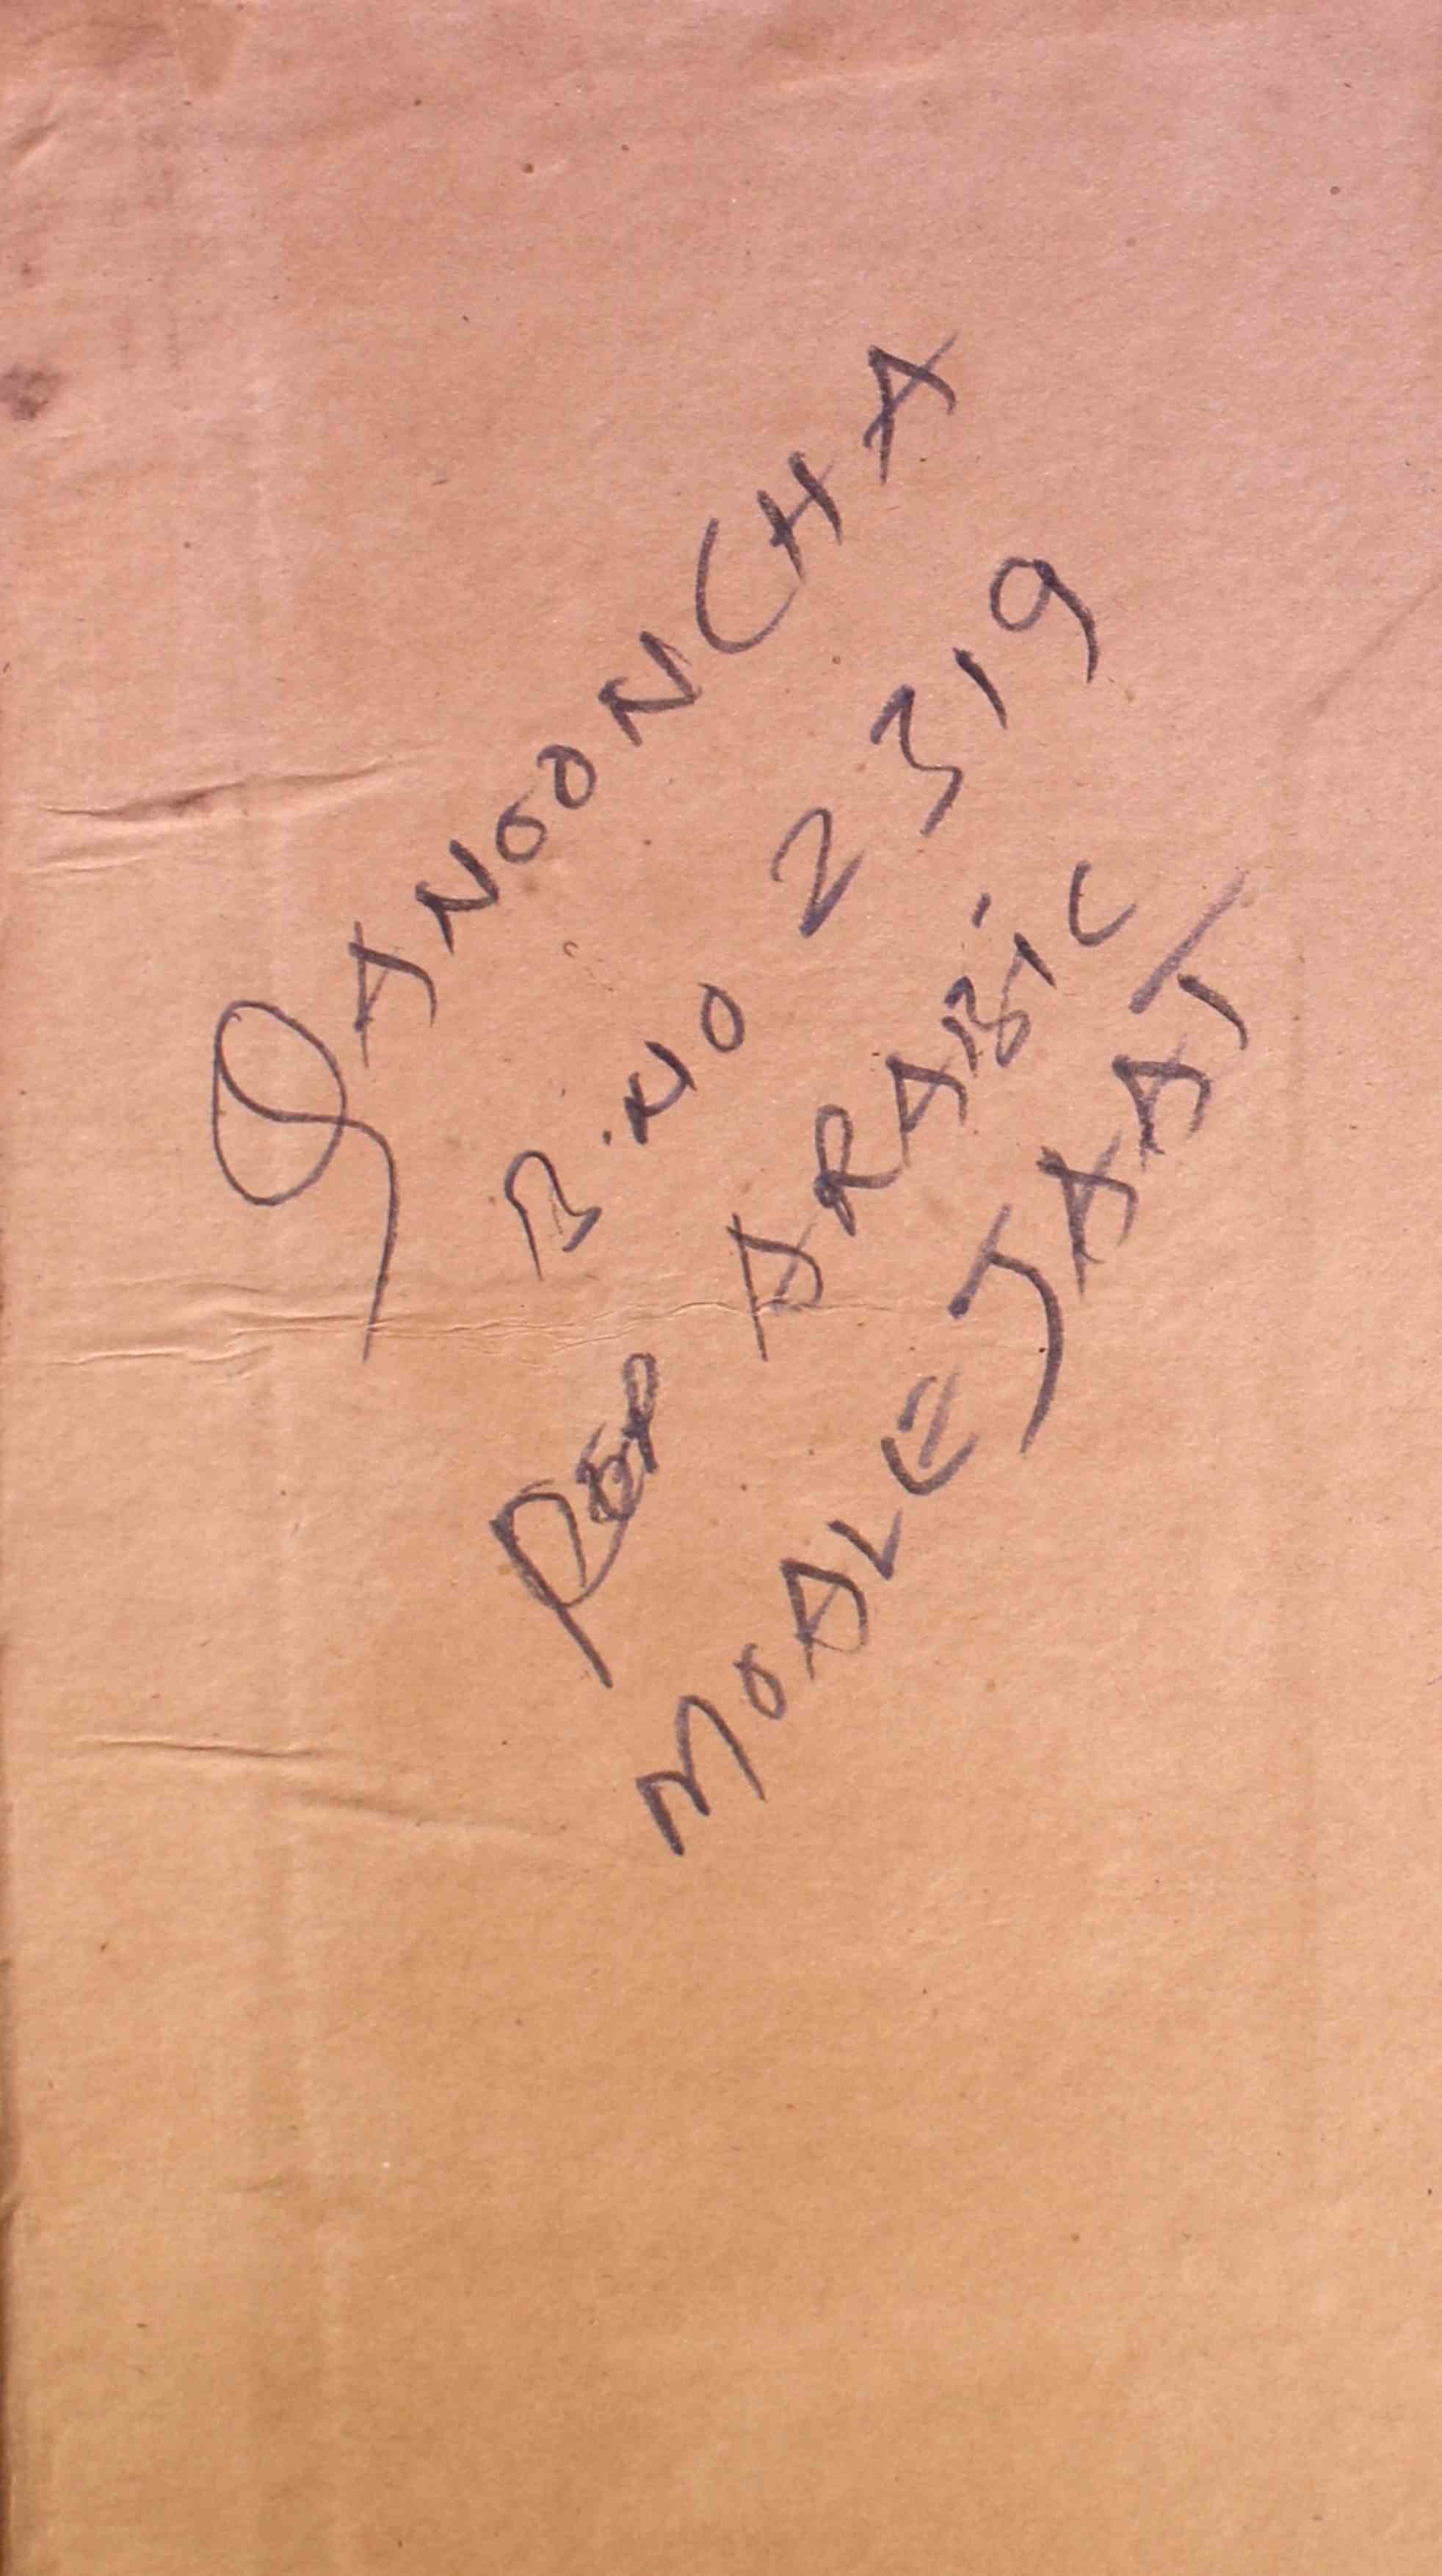 QANOONCHA
B.NO 2319
DEP ARABIC
MOALEJAAT